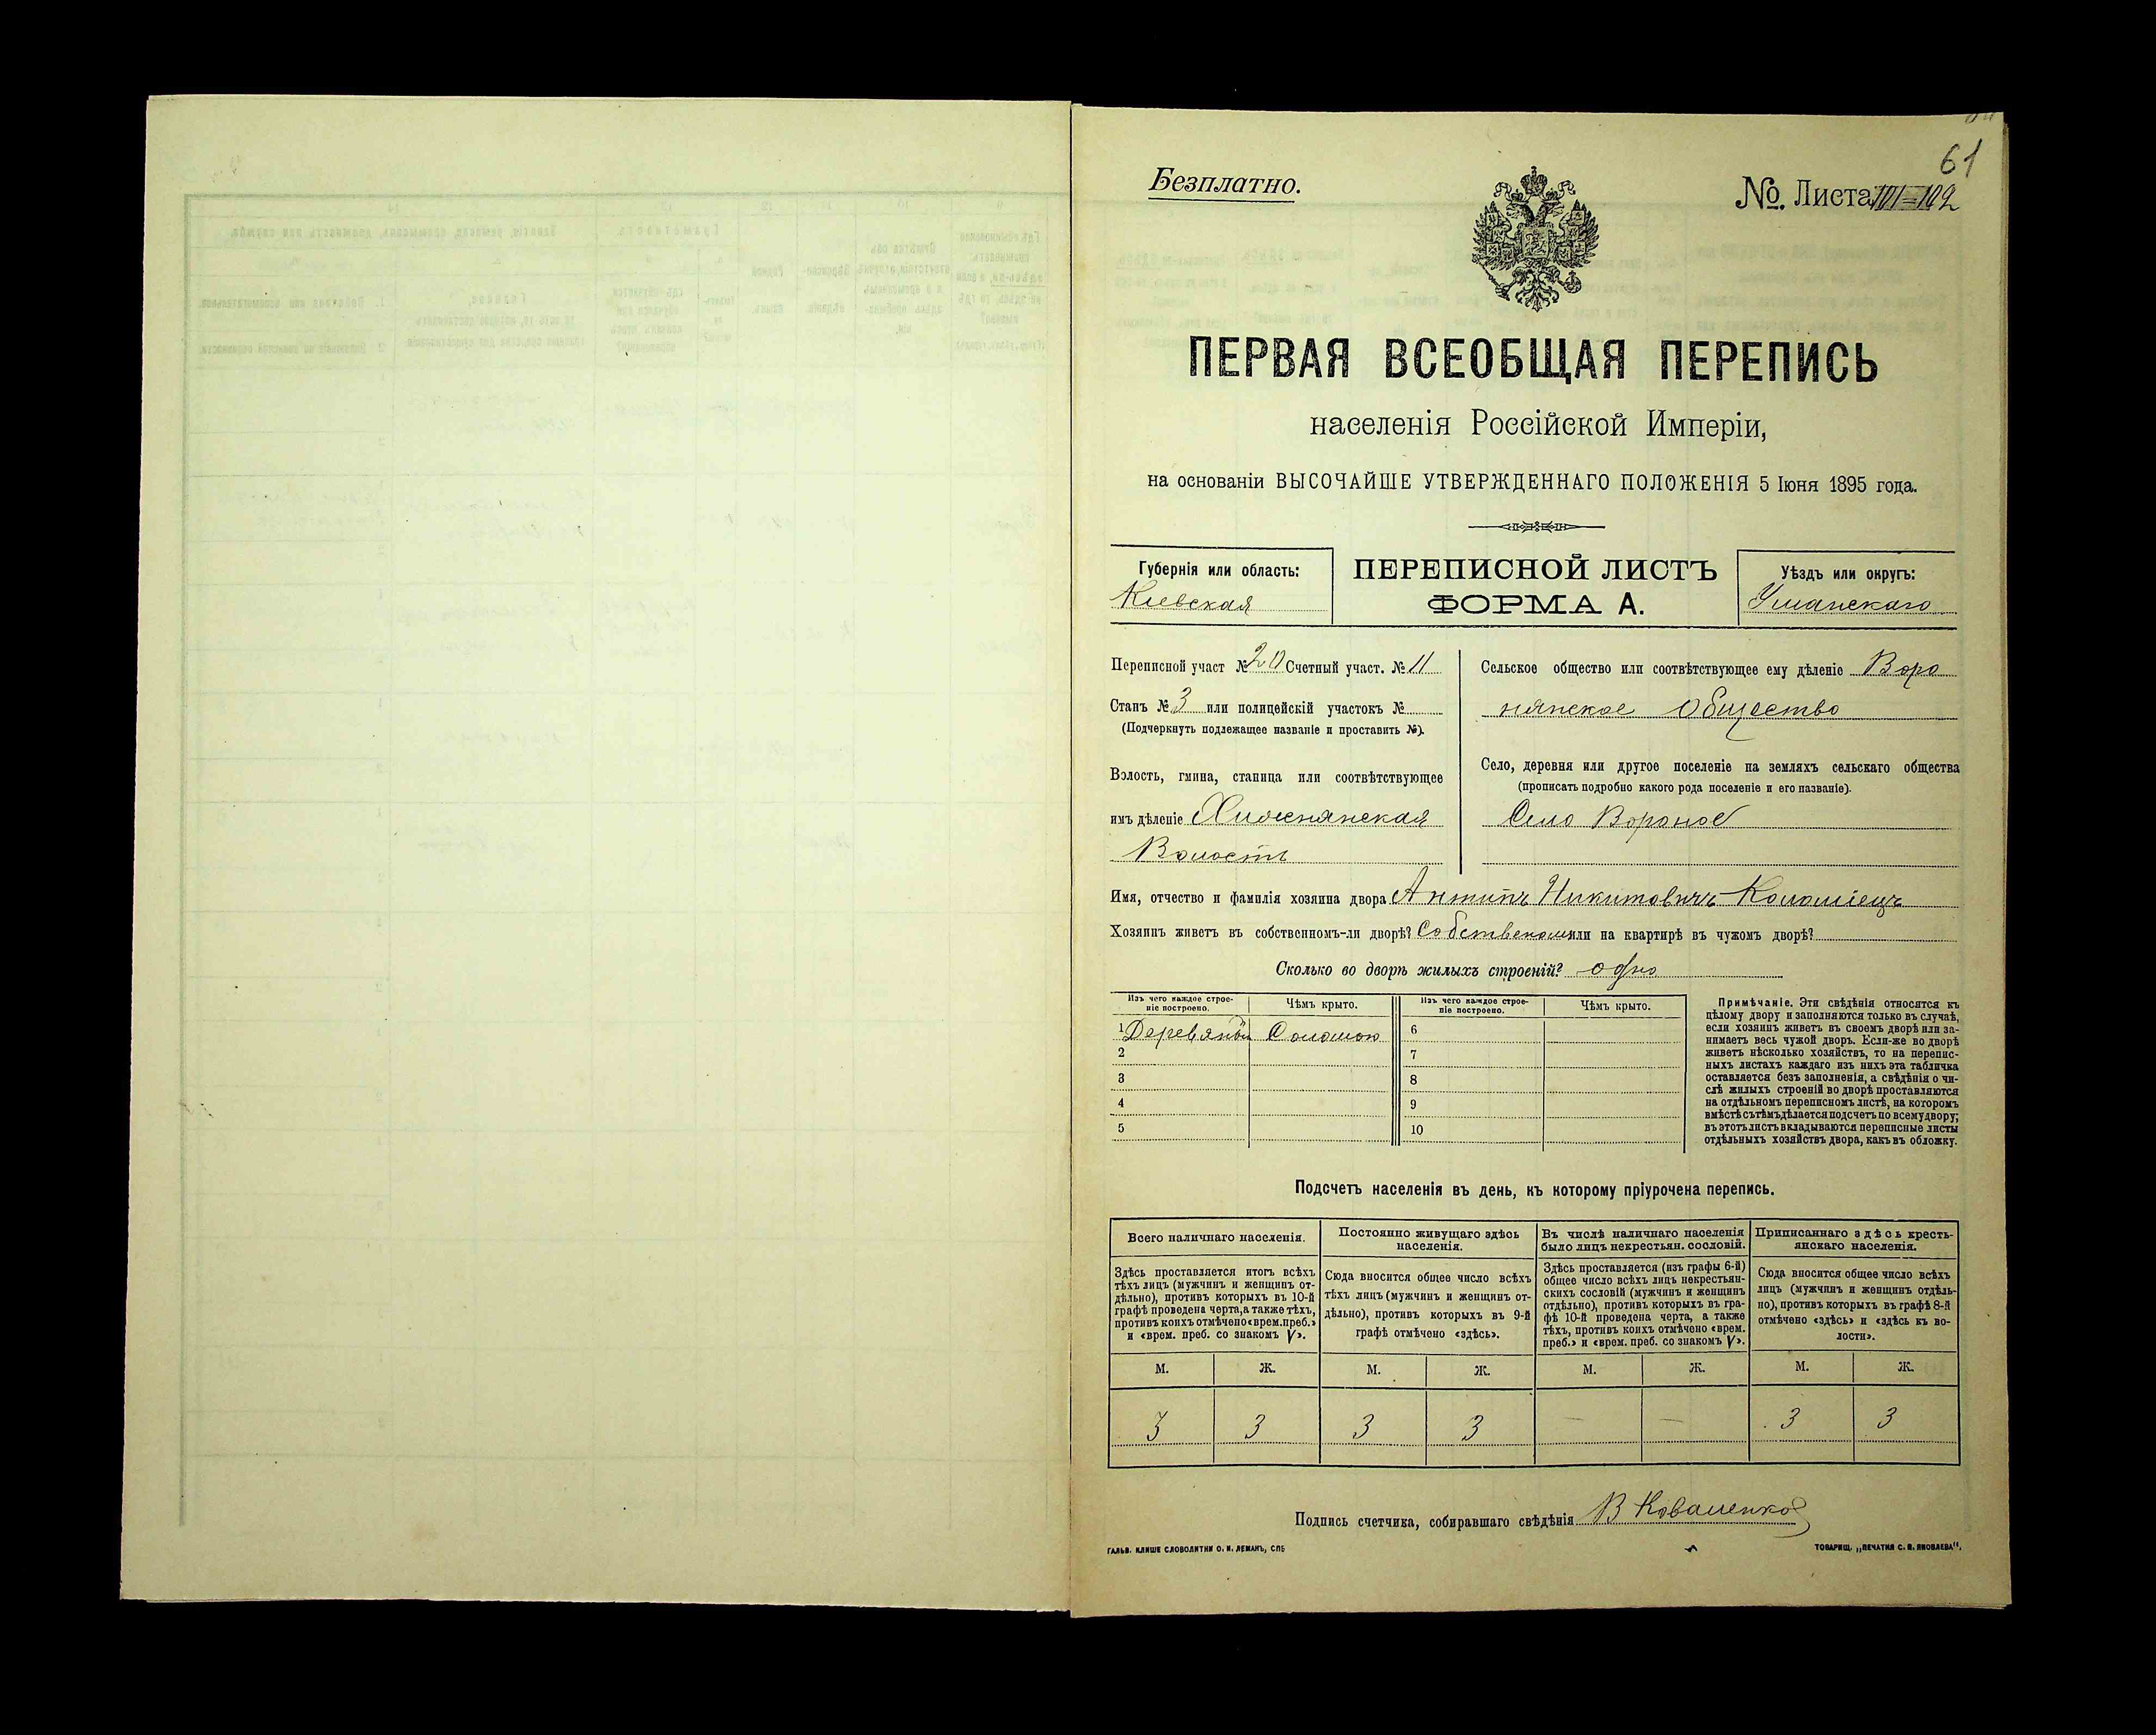 61
Безплатно.
№. Листа 101=102
ПЕРВАЯ ВСЕОБЩАЯ ПЕРЕПИСЬ
населенія Россійской Имперіи,
на основаніи ВЫСОЧАЙШЕ УТВЕРЖДЕННАГО ПОЛОЖЕНІЯ 5 Іюня 1895 года.
Губернія или область:
Киевская
ПЕРЕПИСНОЙ ЛИСТЪ
ФОРМА А.
Уѣздъ или округъ:
Уманскаго
Переписной участ № 20 Счетный участ. № 11
Станъ № 3 или полицейскій участокъ №
(Подчеркнуть подлежащее названіе и проставить №).
Волость, гмина, станица или соотвѣтствующее
имъ дѣленіе Хижнянская
Волость
Сельское общество или соотвѣтствующее ему дѣленіе Воро
нянское Общество
Село, деревня или другое поселеніе на земляхъ сельскаго общества
(прописать подробно какого рода поселеніе и его названіе).
Село Вороное
Имя, отчество и фамилія хозяина двора Антипъ Никитовичъ Коломіецъ
Хозяинъ живетъ въ собственномъ-ли дворѣ? Собственом или на квартирѣ въ чужомъ дворѣ?
Сколько во дворѣ жилыхъ строеній? одно
Изъ чего каждое строе-
ніе построено.
Чѣмъ крыто.
Изъ чего каждое строе-
ніе построено.
Чѣмъ крыто.
1 Деревяный Соломою 6
2 7
3 8
4 9
5 10
Примѣчаніе. Эти свѣдѣнія относятся къ
цѣлому двору и заполняются только въ случаѣ,
если хозяинъ живетъ въ своемъ дворѣ или за-
нимаетъ весь чужой дворъ. Если-же во дворѣ
живетъ нѣсколько хозяйствъ, то на перепис-
ныхъ листахъ каждаго изъ нихъ эта табличка
оставляется безъ заполненія, а свѣдѣнія о чи-
слѣ жилыхъ строеній во дворѣ проставляются
на отдѣльномъ переписномъ листѣ, на которомъ
вмѣстѣ съ тѣмъ дѣлается подсчетъ по всему двору;
въ этотъ листъ вкладываются переписные листы
отдѣльныхъ хозяйствъ двора, какъ въ обложку.
Подсчетъ населенія въ день, къ которому пріурочена перепись.
Всего наличнаго населенія.
Здѣсь проставляется итогъ всѣхъ
тѣхъ лицъ (мужчинъ и женщинъ от-
дѣльно), противъ которыхъ въ 10-й
графѣ проведена черта, а также тѣхъ,
противъ коихъ отмѣчено «врем. преб.»
и «врем. преб. со знакомъ V».
Постоянно живущаго здѣсь
населенія.
Сюда вносится общее число всѣхъ
тѣхъ лицъ (мужчинъ и женщинъ от-
дѣльно), противъ которыхъ въ 9-й
графѣ отмѣчено «здѣсь».
Въ числѣ наличнаго населенія
было лицъ некрестьян. сословій.
Здѣсь проставляется (изъ графы 6-й)
общее число всѣхъ лицъ некрестьян-
скихъ сословій (мужчинъ и женщинъ
отдѣльно), противъ которыхъ въ гра-
фѣ 10-й проведена черта, а также
тѣхъ, противъ коихъ отмѣчено «врем.
преб.» и «врем. преб. со знакомъ V».
Приписаннаго здѣсь кресть-
янскаго населенія.
Сюда вносится общее число всѣхъ
лицъ (мужчинъ и женщинъ отдѣль-
но), противъ которыхъ въ графѣ 8-й
отмѣчено «здѣсь» и «здѣсь къ во-
лости».
М. Ж. М. Ж. М. Ж. М. Ж.
3 3 3 3 — — 3 3
Подпись счетчика, собиравшаго свѣдѣнія В Коваленко
ГАЛЬВ. КЛИШЕ СЛОВОЛИТНИ О. И. ЛЕМАНЪ, СПБ
ТОВАРИЩ. „ПЕЧАТНЯ С. П. ЯКОВЛЕВА".